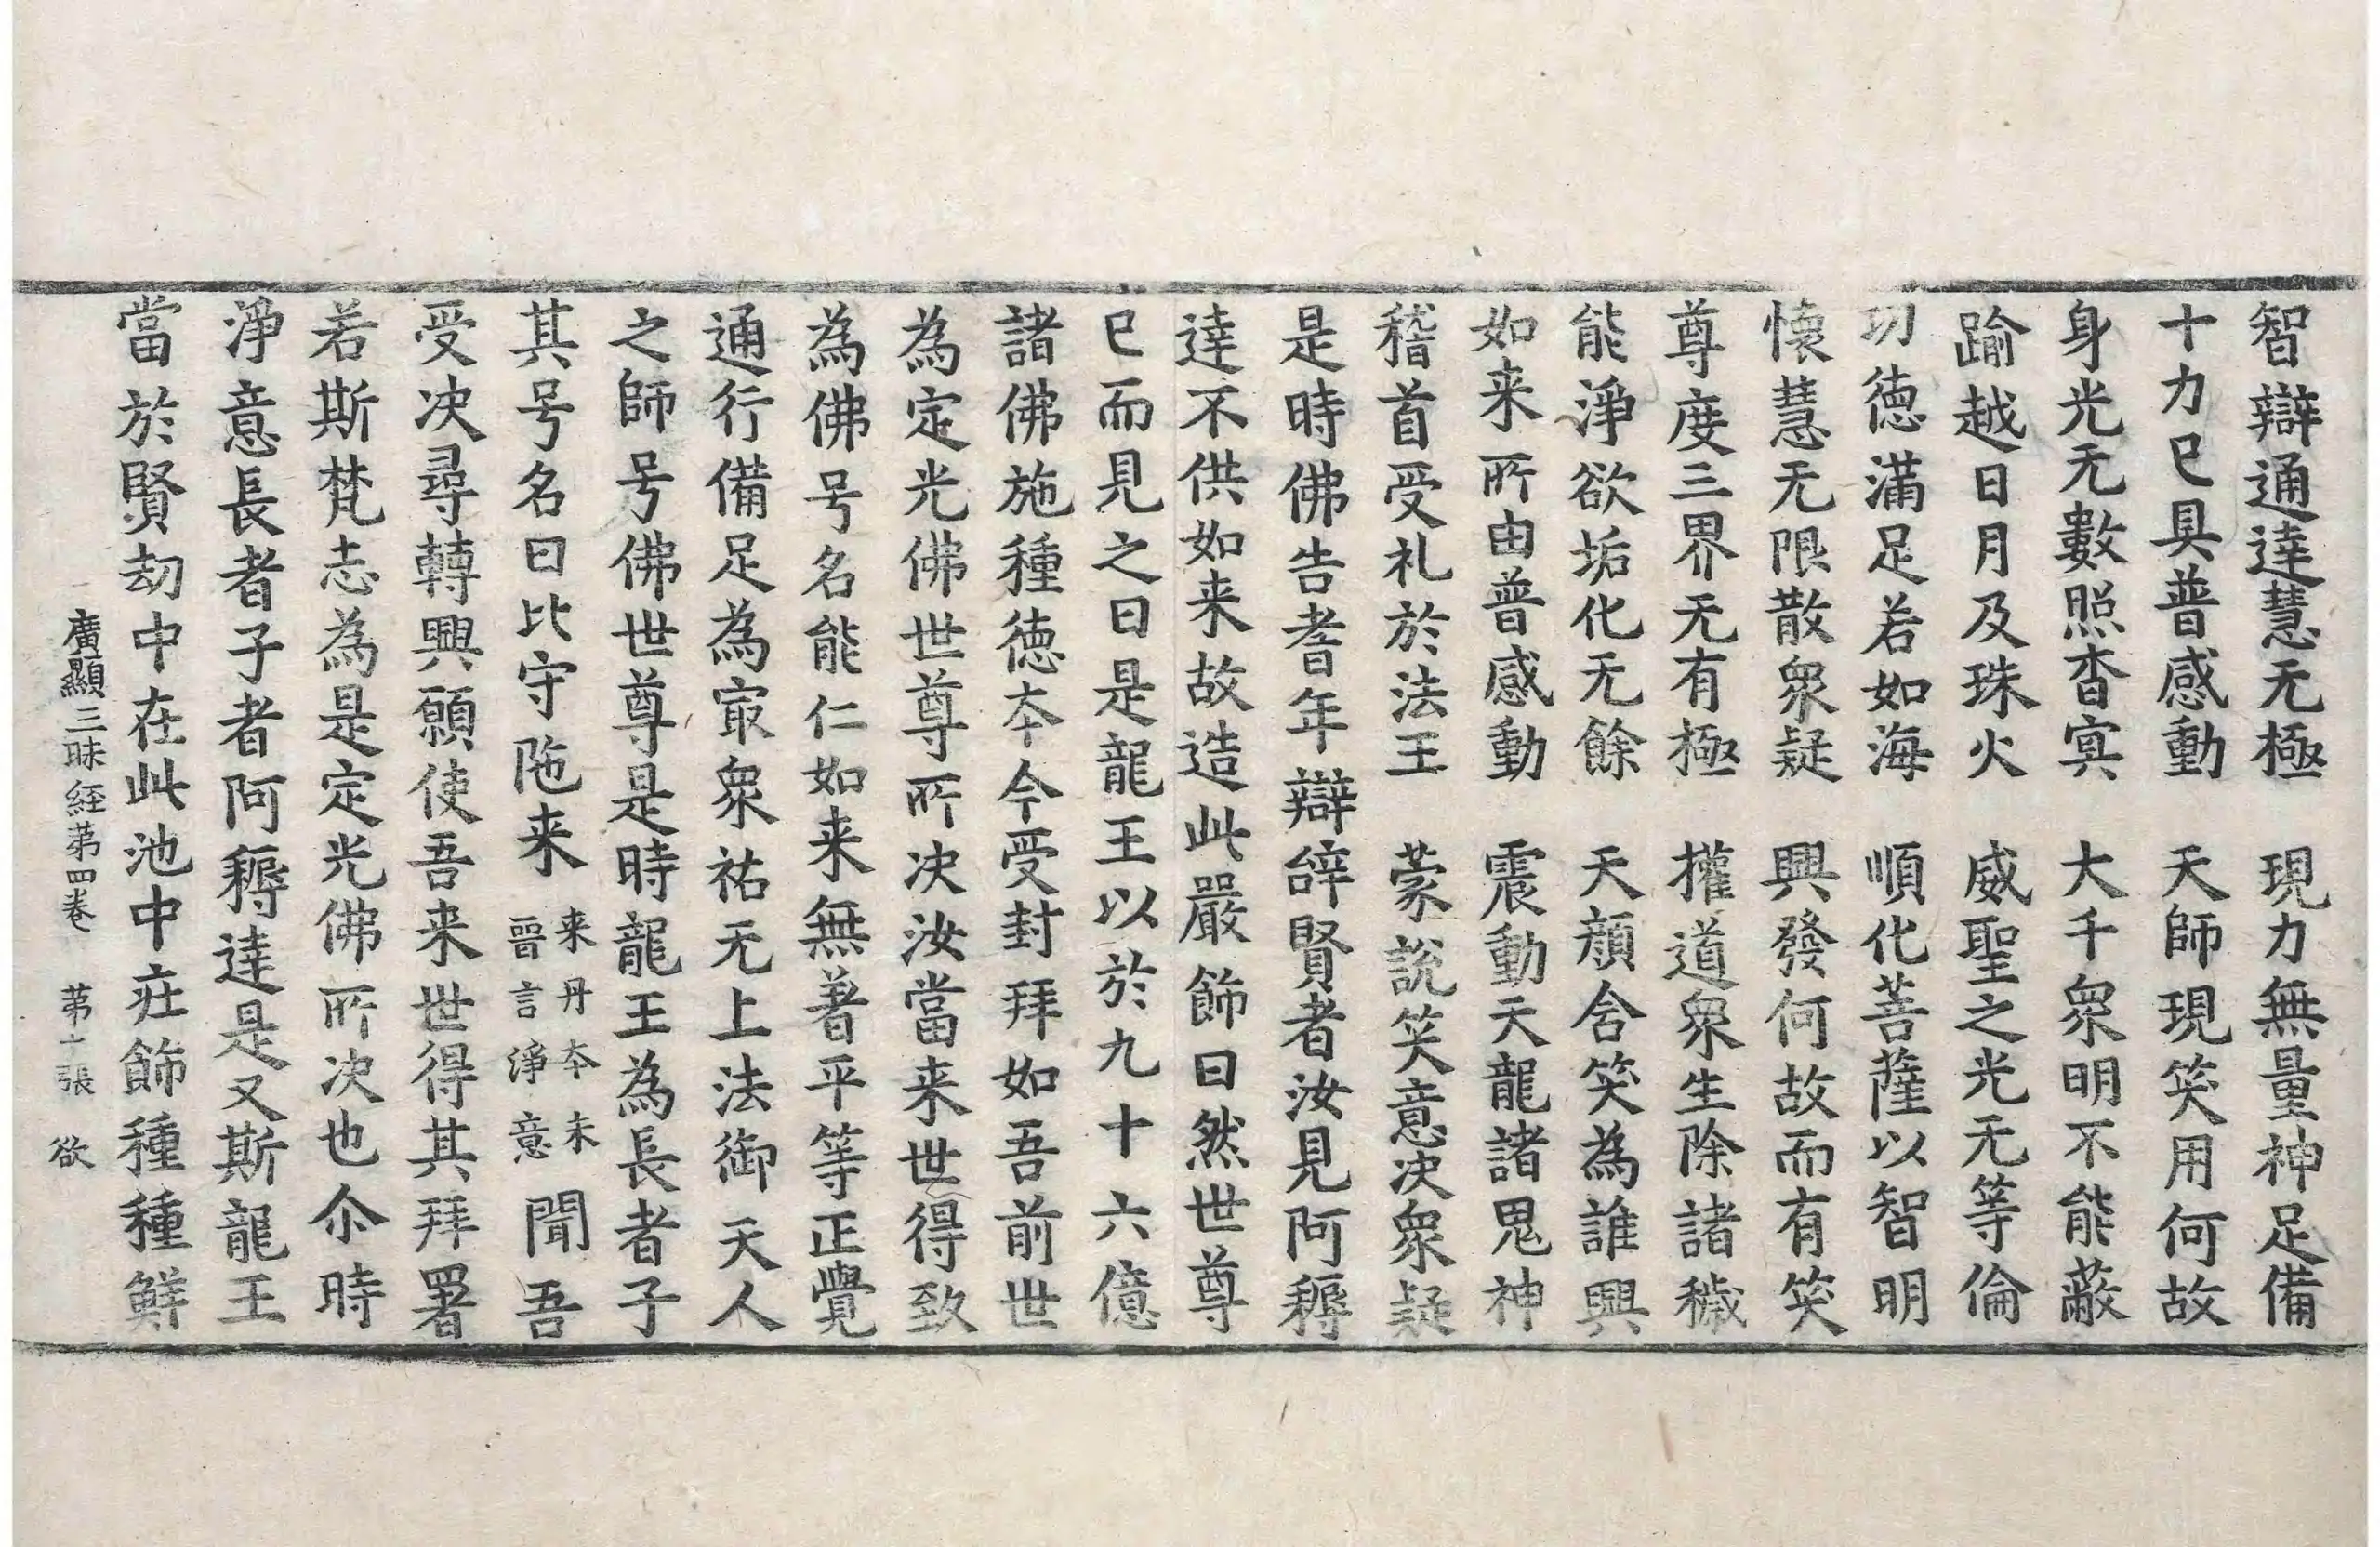 智辯通達慧无極　現力無量神足備
十力已具普感動　天師現笑用何故
身光无數照杳冥　大千衆明不能蔽
踰越日月及珠火　威聖之光无等倫
功德滿足若如海　順化菩薩以智明
懷慧无限散衆疑　興發何故而有笑
尊度三界无有極　權道衆生除諸穢
能淨欲垢化无餘　天顏含笑為誰興
如来所由普感動　震動天龍諸鬼神
稽首受礼於法王　蒙說笑意决衆疑
是時佛告耆年辯辭賢者汝見阿耨
達不供如来故造此嚴飾曰然世尊
已而見之曰是龍王以於九十六億
諸佛施種德夲今受封拜如吾前世
為定光佛世尊所决汝當来世得致
為佛号名能仁如来無著平等正覺
通行備足為㝡衆祐无上法御天人
之師号佛世尊是時龍王為長者子
其号名曰比守陁来来丹夲未晉言淨意聞吾
受决尋轉興願使吾来世得其拜署
若斯梵志為是定光佛所决也尒時
淨意長者子者阿耨達是又斯龍王
當於賢劫中在此池中莊飾種種鮮
廣顯三昧経苐四卷　苐十張　欲